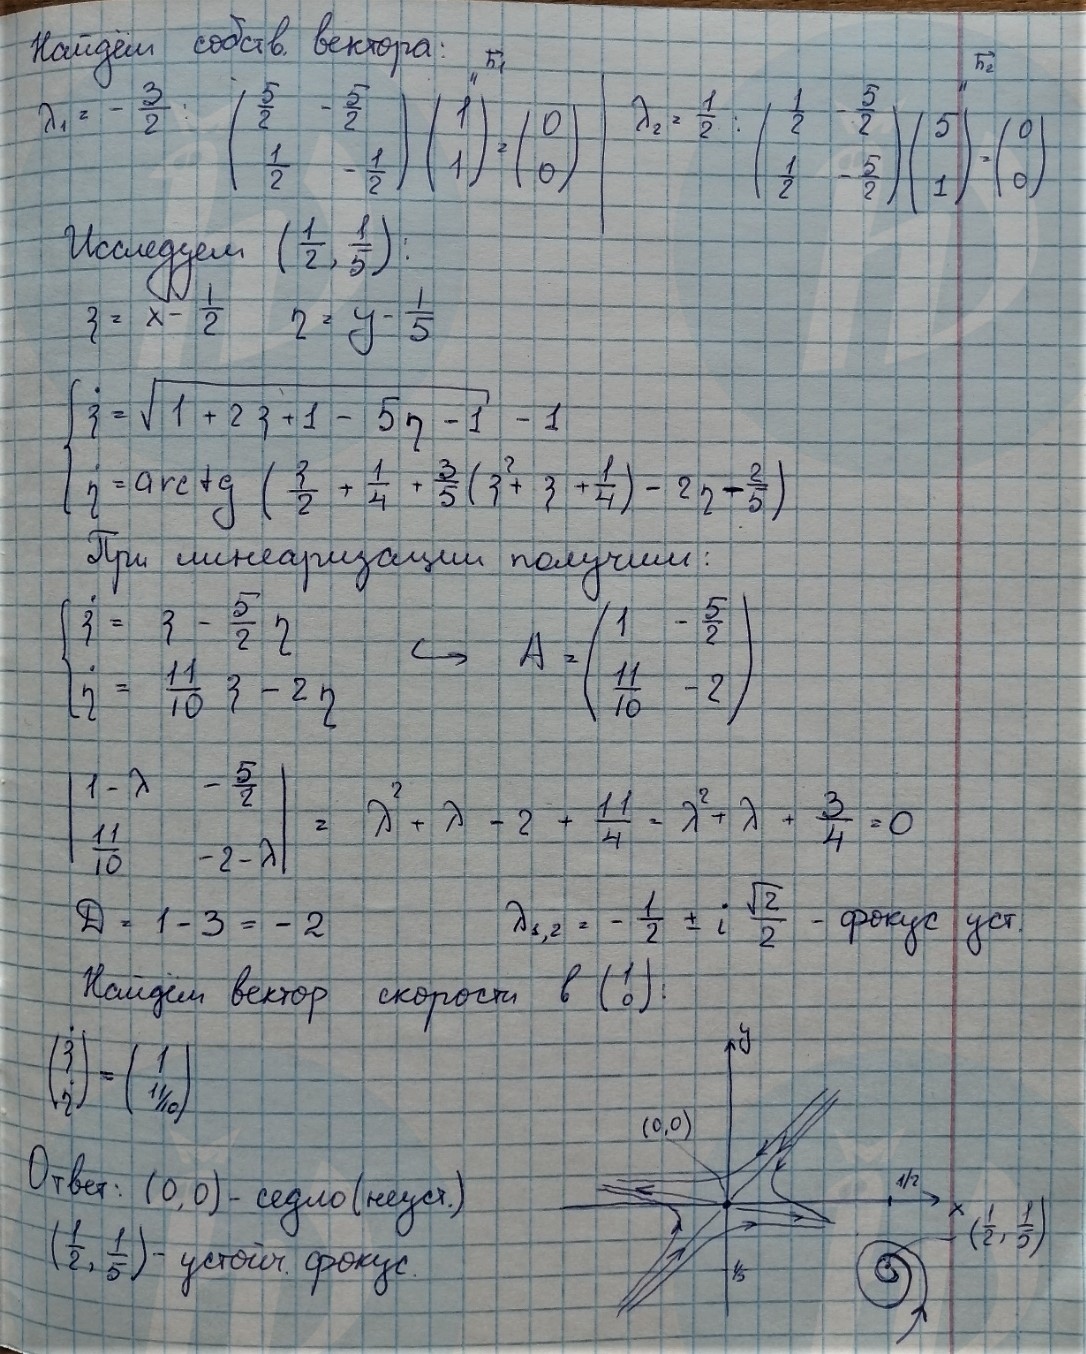 Найдём собств. вектора:
λ₁ = -3/2 : (5/2 -5/2; 1/2 -1/2) (1; 1) = (0; 0) | λ₂ = 1/2 : (1/2 -5/2; 1/2 -5/2) (5; 1) = (0; 0)
" h⃗₁ " h⃗₂
Исследуем (1/2, 1/5):
ξ = x - 1/2 η = y - 1/5
{ ξ̇ = √(1 + 2ξ + 1 - 5η - 1) - 1
η̇ = arctg (ξ/2 + 1/4 + 3/5(ξ² + ξ + 1/4) - 2η - 2/5)
При линеаризации получим:
{ ξ̇ = ξ - 5/2 η
η̇ = 11/10 ξ - 2η ↪ A = (1 -5/2; 11/10 -2)
|1-λ -5/2; 11/10 -2-λ| = λ² + λ - 2 + 11/4 = λ² + λ + 3/4 = 0
D = 1 - 3 = -2 λ₁,₂ = -1/2 ± i √2/2 - фокус уст.
Найдём вектор скорости в (1; 0):
(ξ̇; η̇) = (1; 11/10)
Ответ: (0,0) - седло (неуст.)
(1/2, 1/5) - устойч. фокус.
y
(0,0)
1/2
x
(1/2, 1/5)
1/5